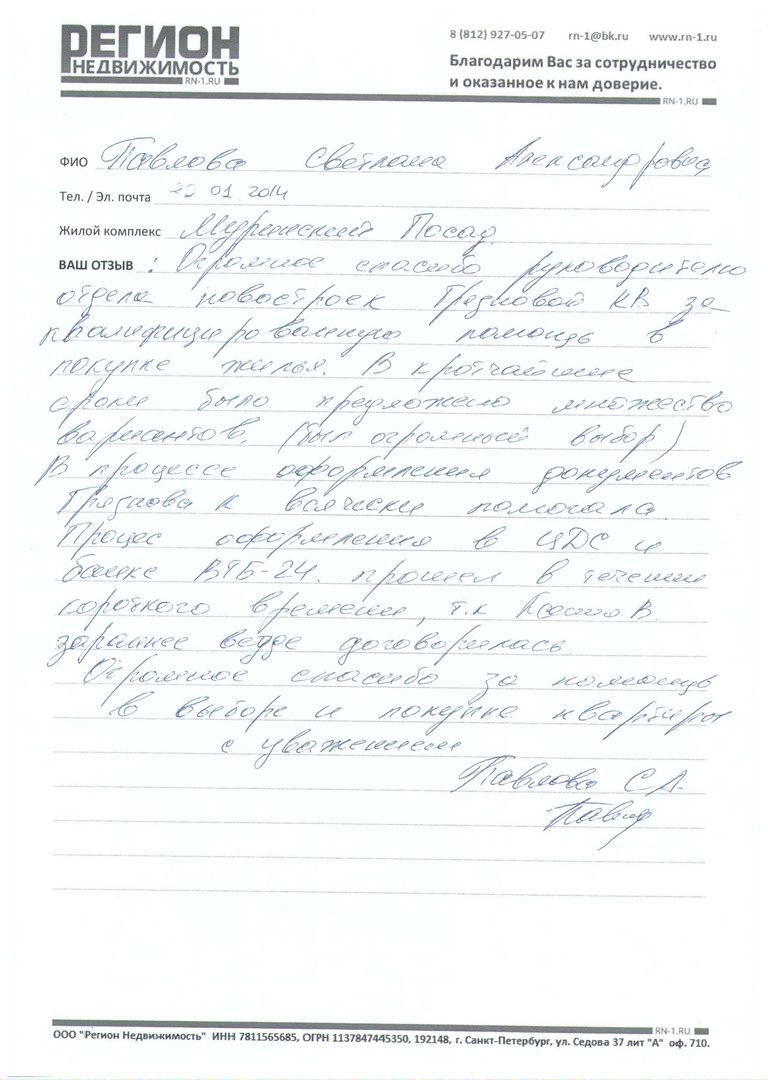 РЕГИОН
НЕДВИЖИМОСТЬ
RN-1.RU
8 (812) 927-05-07 rn-1@bk.ru www.rn-1.ru
Благодарим Вас за сотрудничество
и оказанное к нам доверие.
RN-1.RU
ФИО Павлова Светлана Александровна
Тел. / Эл. почта 01 2014
Жилой комплекс Муринский Посад
ВАШ ОТЗЫВ : Огромное спасибо руководителю
отдела новостроек Грязновой КВ за
квалифицированную помощь в
покупке жилья. В кротчайшие
сроки было предложено множество
вариантов. (был огромный выбор)
В процессе оформления документов
Грязнова К всячески помогала
Процес оформления в ЦДС и
банке ВТБ-24. прошел в течении
короткого времени, т.к Ксения В.
заранее везде договорилась.
Огромное спасибо за помощь
в выборе и покупке квартиры
с уважением
Павлова СА.
RN-1.RU
ООО "Регион Недвижимость" ИНН 7811565685, ОГРН 1137847445350, 192148, г. Санкт-Петербург, ул. Седова 37 лит "А" оф. 710.